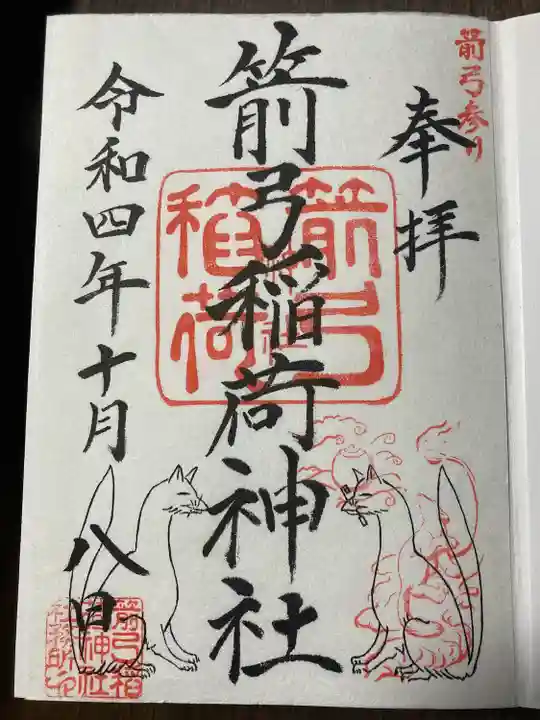 箭弓参り
奉拝
箭弓稲荷神社
箭弓稲荷神社
令和四年十月八日
箭弓稲
荷神社
社務所印